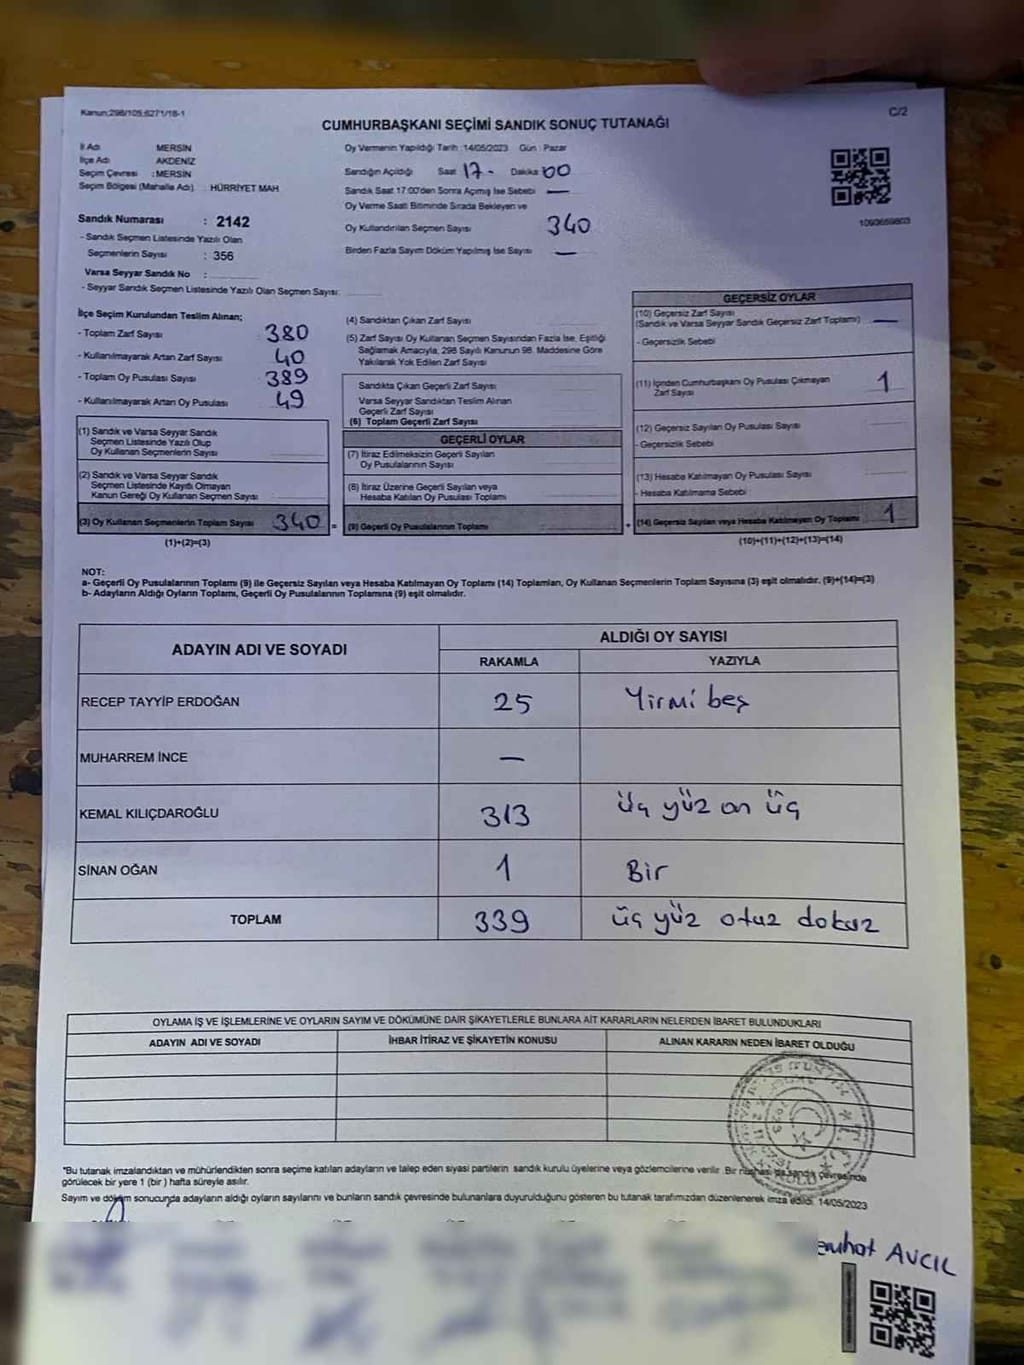 Kanun;298/105;6271/18-1
C/2
CUMHURBAŞKANI SEÇİMİ SANDIK SONUÇ TUTANAĞI
İl Adı MERSİN
İlçe Adı AKDENİZ
Seçim Çevresi : MERSİN
Seçim Bölgesi (Mahalle Adı) : HÜRRİYET MAH
Sandık Numarası : 2142
- Sandık Seçmen Listesinde Yazılı Olan
Seçmenlerin Sayısı : 356
Varsa Seyyar Sandık No :
- Seyyar Sandık Seçmen Listesinde Yazılı Olan Seçmen Sayısı:
Oy Vermenin Yapıldığı Tarih : 14/05/2023 Gün : Pazar
Sandığın Açıldığı Saat 17- Dakika 00
Sandık Saat 17:00'den Sonra Açılmış İse Sebebi —
Oy Verme Saati Bitiminde Sırada Bekleyen ve
Oy Kullandırılan Seçmen Sayısı 340
Birden Fazla Sayım Döküm Yapılmış İse Sayısı —
1090659803
İlçe Seçim Kurulundan Teslim Alınan;
- Toplam Zarf Sayısı 380
- Kullanılmayarak Artan Zarf Sayısı 40
- Toplam Oy Pusulası Sayısı 389
- Kullanılmayarak Artan Oy Pusulası 49
(1) Sandık ve Varsa Seyyar Sandık
Seçmen Listesinde Yazılı Olup
Oy Kullanan Seçmenlerin Sayısı
(2) Sandık ve Varsa Seyyar Sandık
Seçmen Listesinde Kayıtlı Olmayan
Kanun Gereği Oy Kullanan Seçmen Sayısı
(3) Oy Kullanan Seçmenlerin Toplam Sayısı 340 =
(1)+(2)=(3)
(4) Sandıktan Çıkan Zarf Sayısı
(5) Zarf Sayısı Oy Kullanan Seçmen Sayısından Fazla İse, Eşitliği
Sağlamak Amacıyla, 298 Sayılı Kanunun 98. Maddesine Göre
Yakılarak Yok Edilen Zarf Sayısı
Sandıkta Çıkan Geçerli Zarf Sayısı
Varsa Seyyar Sandıktan Teslim Alınan
Geçerli Zarf Sayısı
(6) Toplam Geçerli Zarf Sayısı
GEÇERLİ OYLAR
(7) İtiraz Edilmeksizin Geçerli Sayılan
Oy Pusulalarının Sayısı
(8) İtiraz Üzerine Geçerli Sayılan veya
Hesaba Katılan Oy Pusulası Toplamı
(9) Geçerli Oy Pusulalarının Toplamı +
GEÇERSİZ OYLAR
(10) Geçersiz Zarf Sayısı
(Sandık ve Varsa Seyyar Sandık Geçersiz Zarf Toplamı) —
- Geçersizlik Sebebi
(11) İçinden Cumhurbaşkanı Oy Pusulası Çıkmayan
Zarf Sayısı 1
(12) Geçersiz Sayılan Oy Pusulası Sayısı
- Geçersizlik Sebebi
(13) Hesaba Katılmayan Oy Pusulası Sayısı
- Hesaba Katılmama Sebebi
(14) Geçersiz Sayılan veya Hesaba Katılmayan Oy Toplamı 1
(10)+(11)+(12)+(13)=(14)
NOT:
a- Geçerli Oy Pusulalarının Toplamı (9) ile Geçersiz Sayılan veya Hesaba Katılmayan Oy Toplamı (14) Toplamları, Oy Kullanan Seçmenlerin Toplam Sayısına (3) eşit olmalıdır. (9)+(14)=(3)
b- Adayların Aldığı Oyların Toplamı, Geçerli Oy Pusulalarının Toplamına (9) eşit olmalıdır.
ADAYIN ADI VE SOYADI ALDIĞI OY SAYISI
RAKAMLA YAZIYLA
RECEP TAYYİP ERDOĞAN 25 Yirmi beş
MUHARREM İNCE —
KEMAL KILIÇDAROĞLU 313 üç yüz on üç
SİNAN OĞAN 1 Bir
TOPLAM 339 üç yüz otuz dokuz
OYLAMA İŞ VE İŞLEMLERİNE VE OYLARIN SAYIM VE DÖKÜMÜNE DAİR ŞİKAYETLERLE BUNLARA AİT KARARLARIN NELERDEN İBARET BULUNDUKLARI
ADAYIN ADI VE SOYADI İHBAR İTİRAZ VE ŞİKAYETİN KONUSU ALINAN KARARIN NEDEN İBARET OLDUĞU
*Bu tutanak imzalandıktan ve mühürlendikten sonra seçime katılan adayların ve talep eden siyasi partilerin sandık kurulu üyelerine veya gözlemcilerine verilir. Bir nüshası da sandık çevresinde
görülecek bir yere 1 (bir) hafta süreyle asılır.
Sayım ve döküm sonucunda adayların aldığı oyların sayılarını ve bunların sandık çevresinde bulunanlara duyurulduğunu gösteren bu tutanak tarafımızdan düzenlenerek imza edildi. 14/05/2023
AVCIL